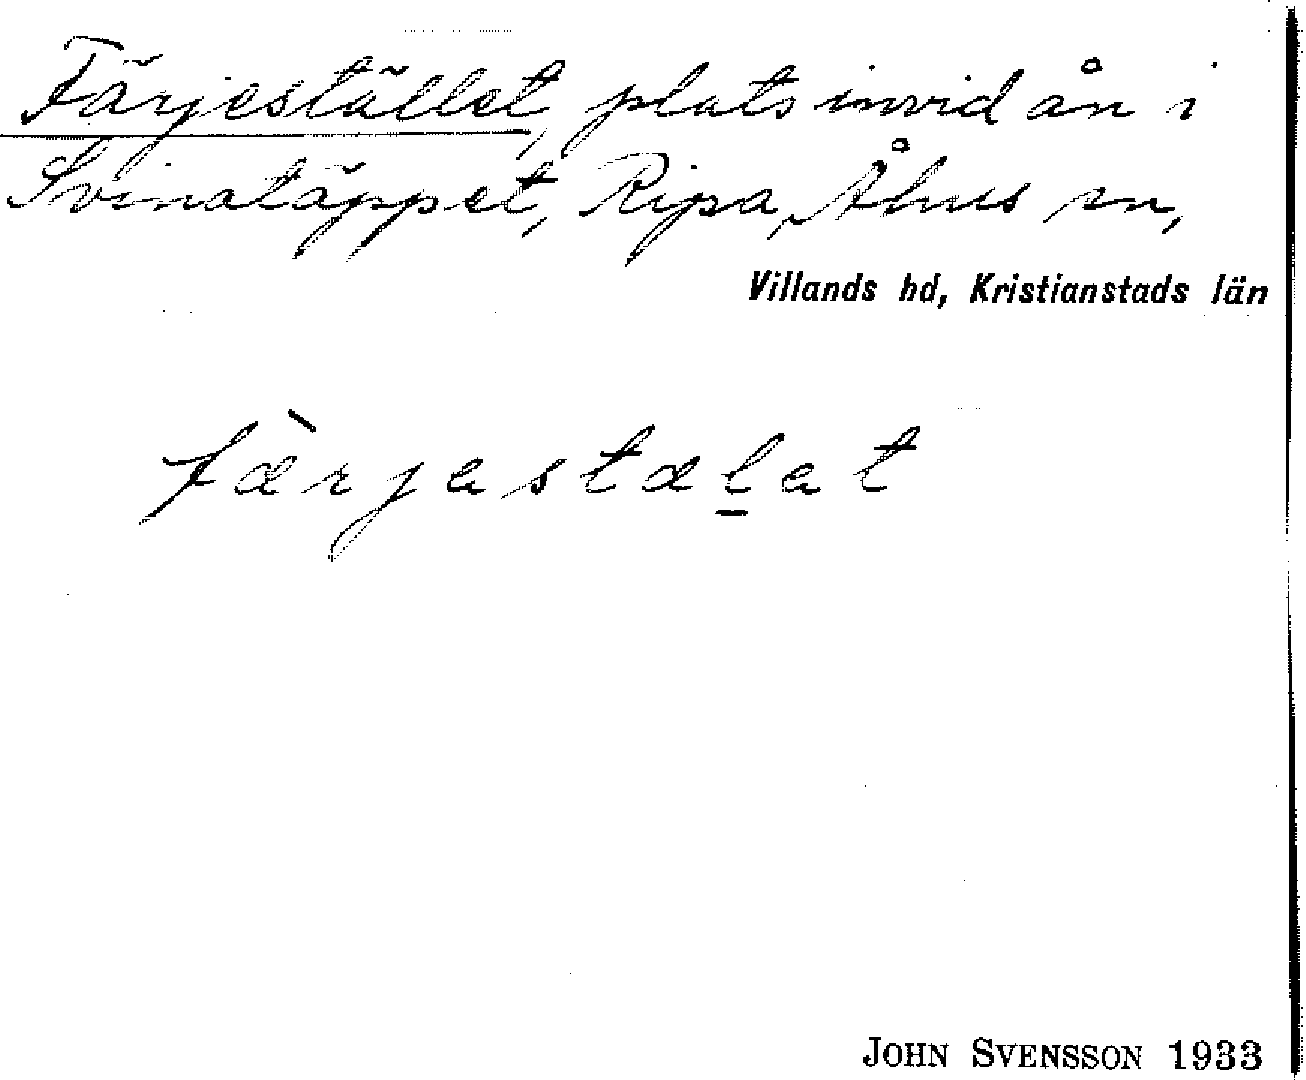 Färjestället, plats invid ån i
Svinatäppet, Ripa, Åhus sn,
Villands hd, Kristianstads län
fæ̀rjastæl̲at
JOHN SVENSSON 1933